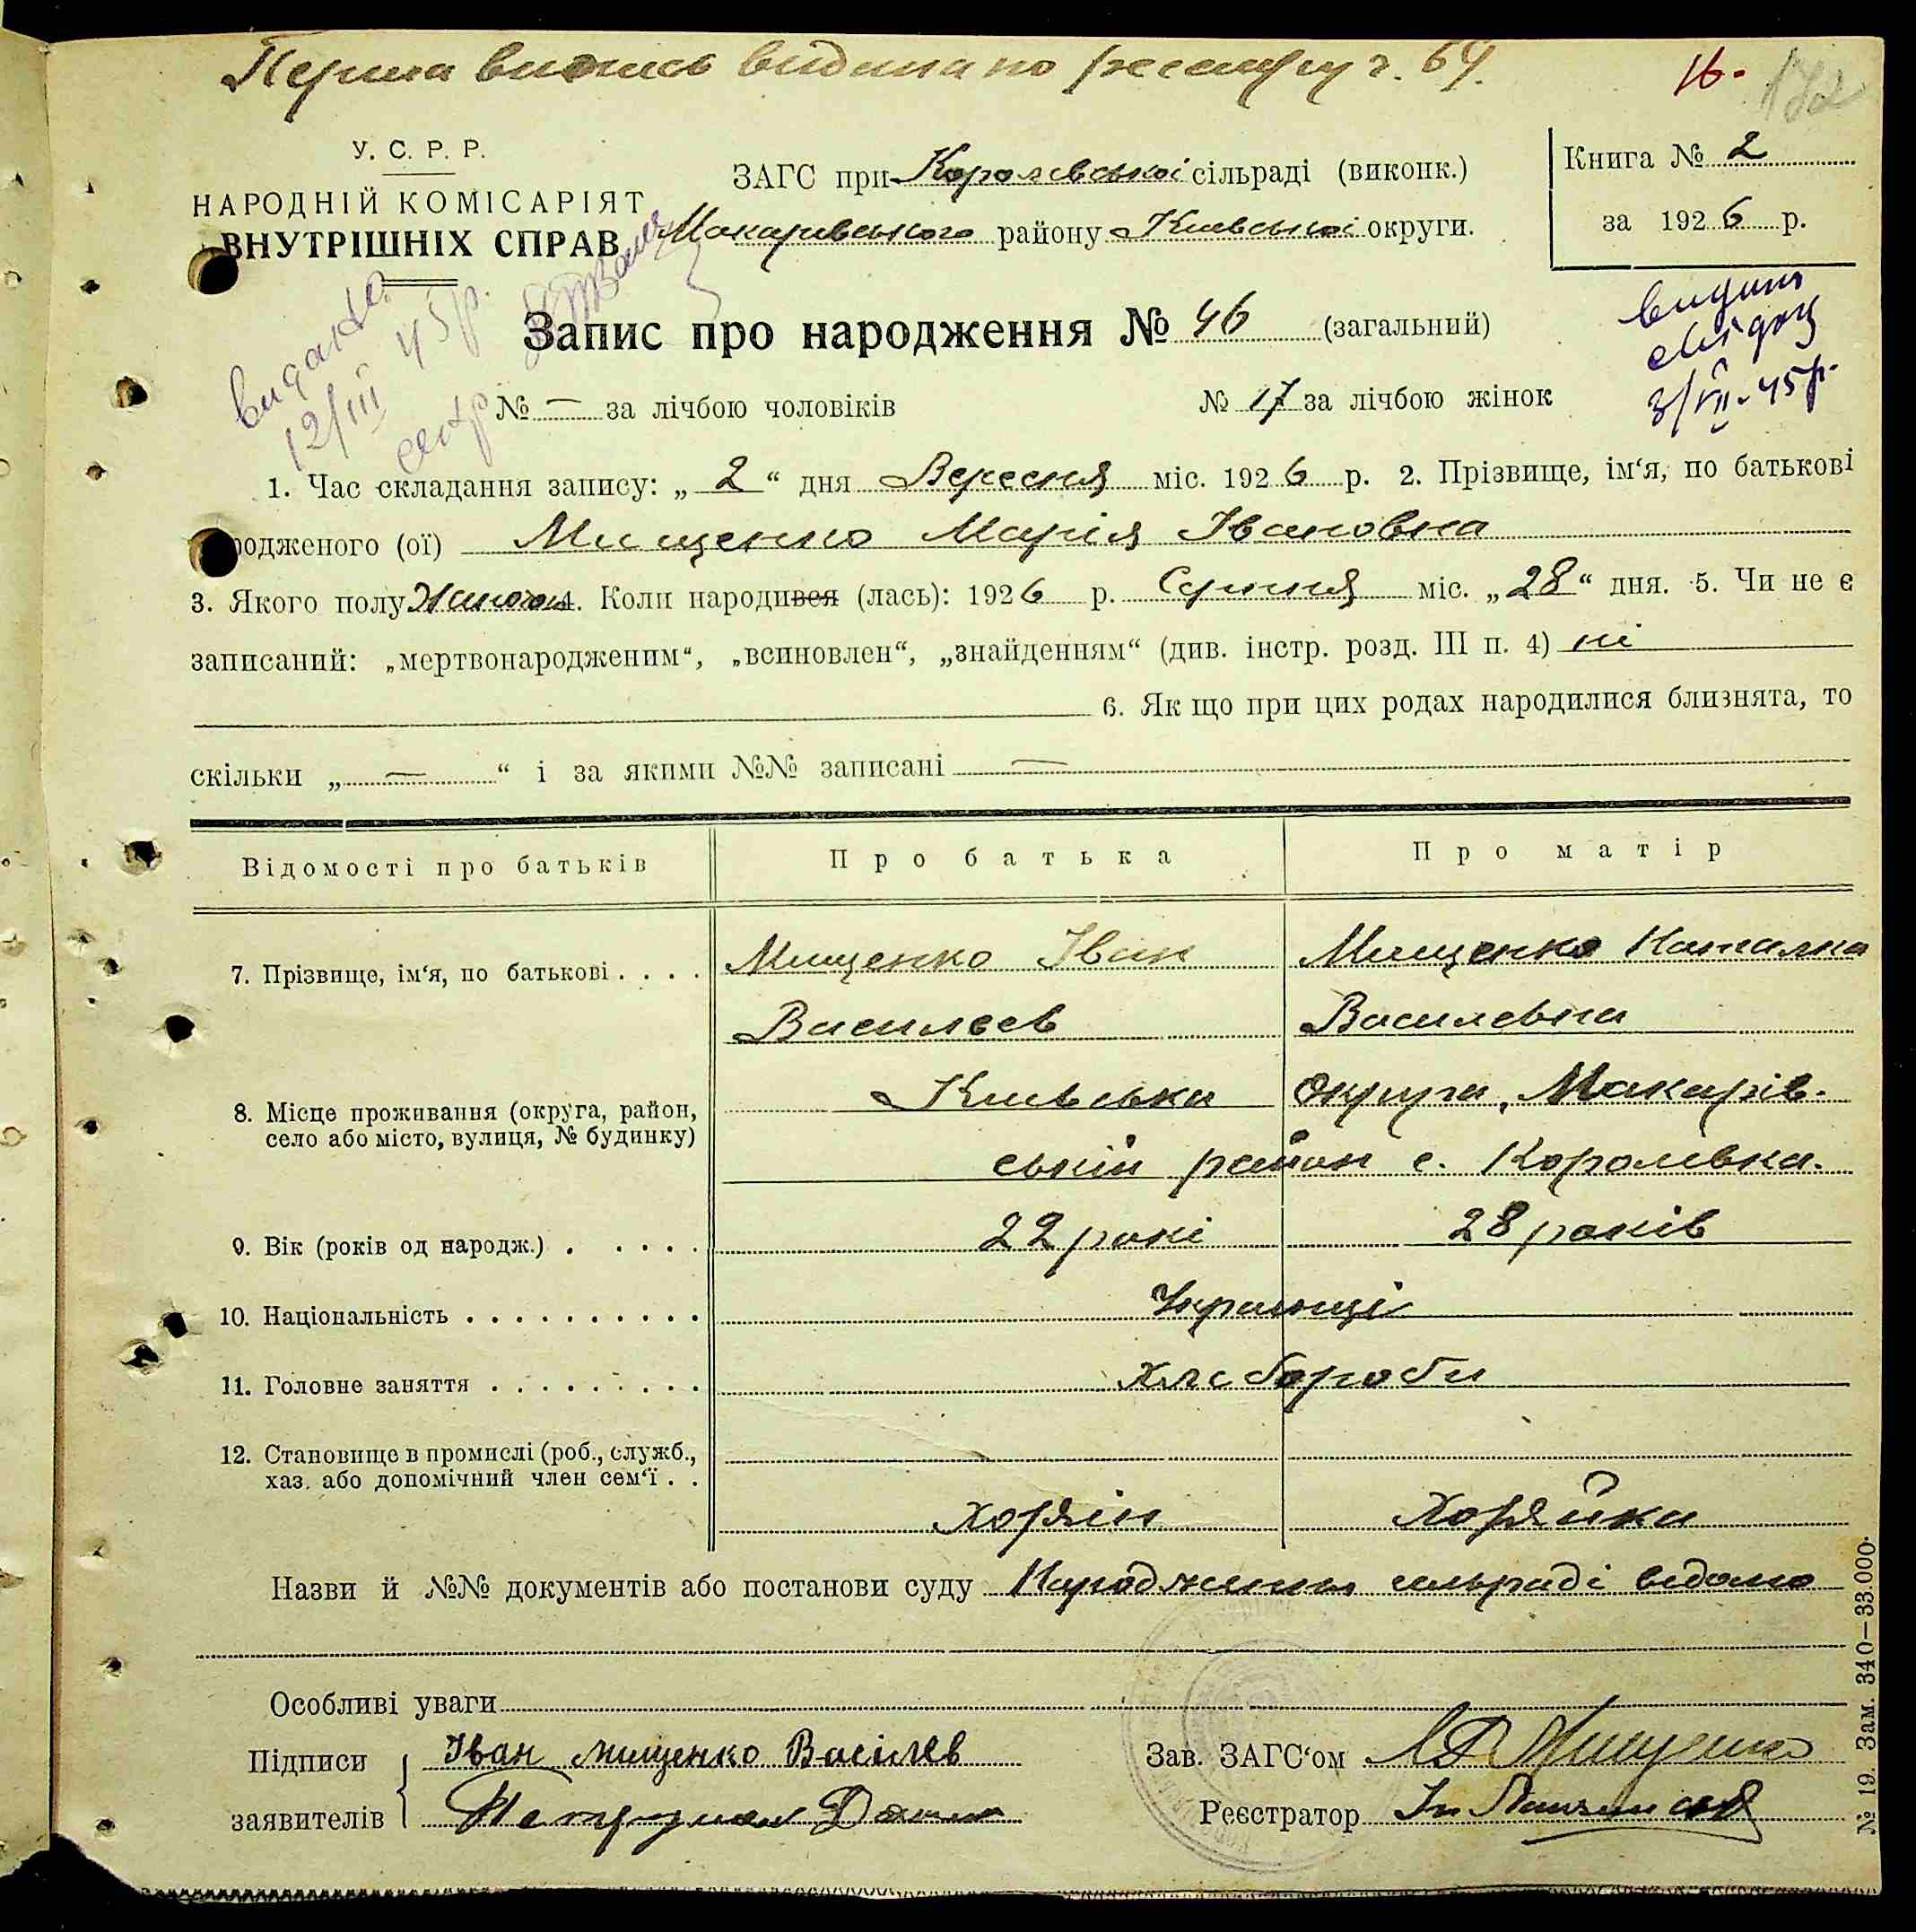 Перша випись видана по реєстру ч. 64.
16.
172
У. С. Р. Р.
НАРОДНІЙ КОМІСАРІЯТ
ВНУТРІШНІХ СПРАВ
ЗАГС при Королевської сільраді (виконк.)
Макарівського району Київської округи.
Книга № 2
за 1926 р.
видано
12/III 45р.
Запис про народження № 46 (загальний)
видано
свідоц
3/VII-45р.
№ — за лічбою чоловіків № 17 за лічбою жінок
1. Час складання запису: „ 2 “ дня Вересня міс. 1926 р. 2. Прізвище, ім‘я, по батькові
родженого (ої) Мищенко Марія Івановна
3. Якого полу Жіночої 4. Коли народився (лась): 1926 р. Серпня міс. „28“ дня. 5. Чи не є
записаний: „мертвонародженим“, „всиновлен“, „знайденням“ (див. інстр. розд. III п. 4) ні
6. Як що при цих родах народилися близнята, то
скільки „ — “ і за якими №№ записані —
Відомості про батьків Про батька Про матір
7. Прізвище, ім‘я, по батькові . . . . Мищенко Іван Мищенко Наталка
Васильєв Василевна
8. Місце проживання (округа, район, Київська округа, Макарів-
село або місто, вулиця, № будинку) ський район с. Королівка.
9. Вік (років од народж.) . . . . . 22 рокі 28 років
10. Національність . . . . . . . . . . Українці
11. Головне заняття . . . . . . . . . Хлебороби
12. Становище в промислі (роб., служб.,
хаз. або допомічний член сем‘ї . .
Хозяїн Хозяйка
Назви й №№ документів або постанови суду Народження сельраді відомо
Особливі уваги
Підписи Іван мищенко Васілєв Зав. ЗАГС‘ом Мищенко
заявителів Реєстратор
№ 19. Зам. 340—33.000.